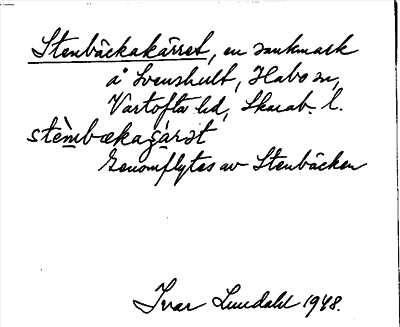 Stenbäckakärret, en sankmark
å Svenshult, Habo sn,
Vartofta hd, Skarab. l.
stèmbækaçàrət
Genomflytes av Stenbäcken
Ivar Lundahl 1948.